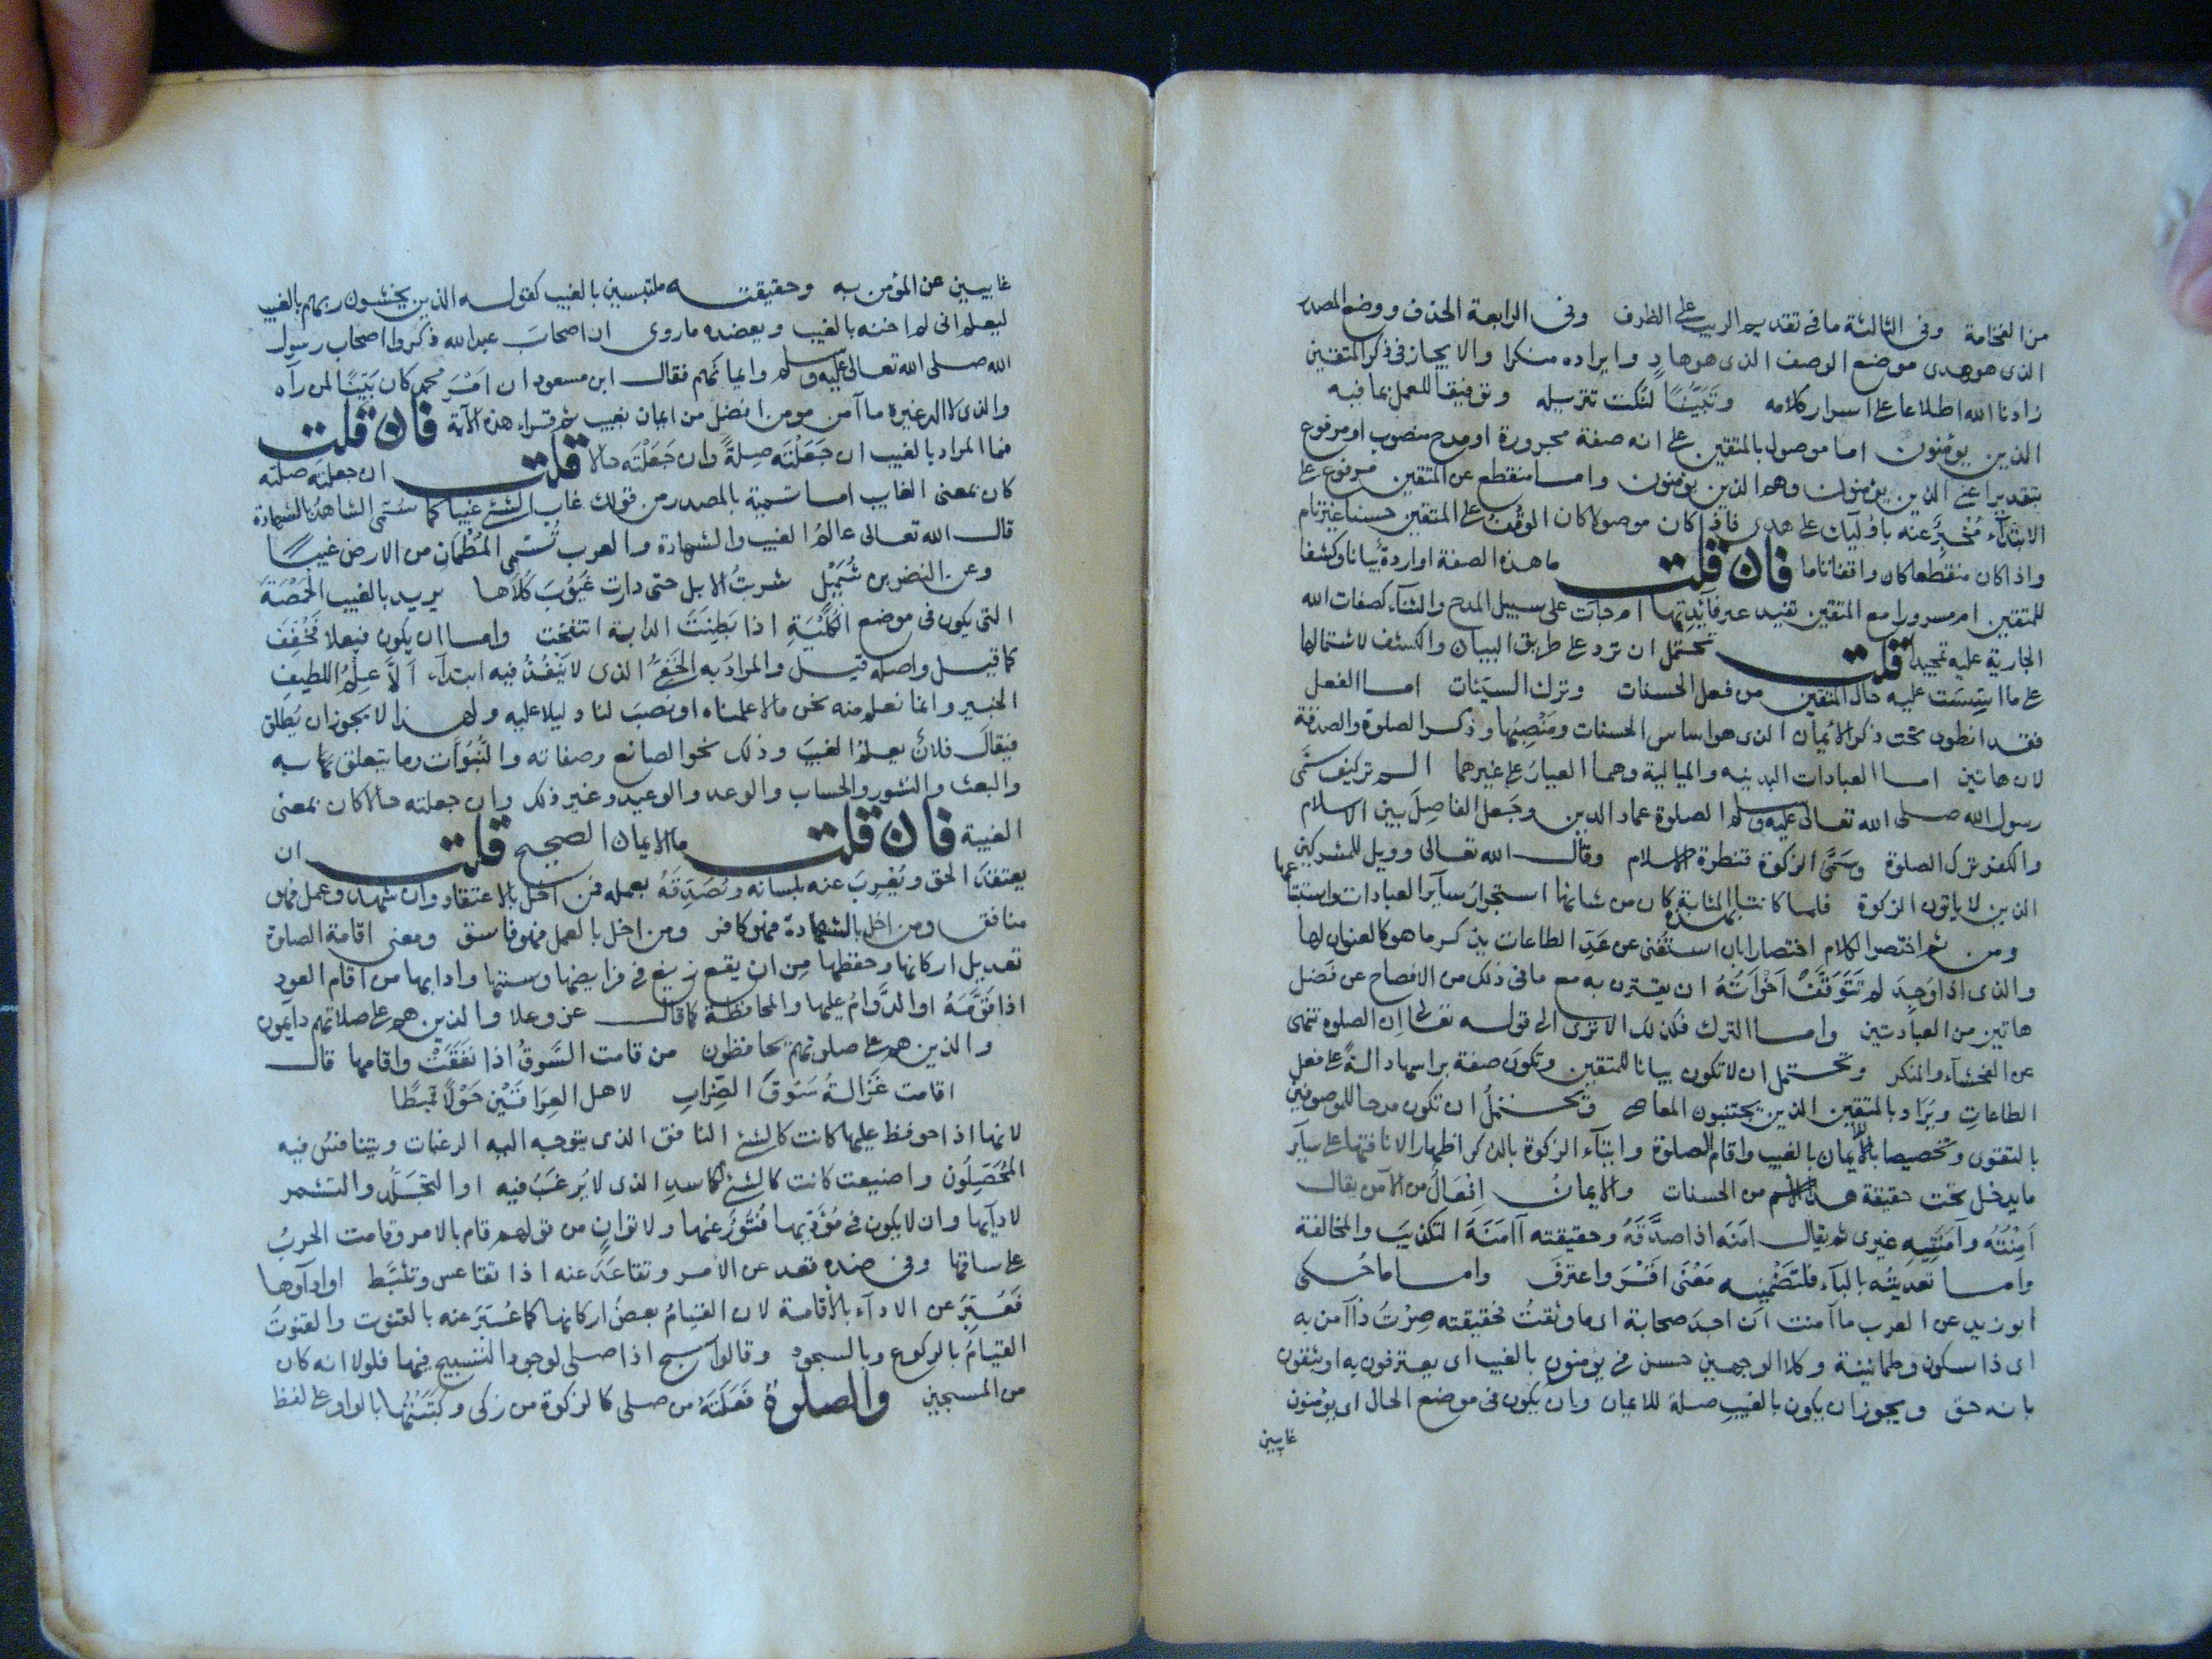 من الفخامة وفى الثالثة ما فى تقديم الريب على الظرف وفى الرابعة الحذف ووضع المصدر
الذى هو هدى موضع الوصف الذى هو هادٍ وايراده منكرا والايجاز فى ذكر المتقين
زادنا الله اطلاعا على اسرار كلامه وتبيّنًا لنكت تنزيله وتوفيقا للعمل بما فيه
الذين يؤمنون اما موصول بالمتقين على انه صفة مجرورة او مدح منصوب او مرفوع
بتقدير اعنى الذين يؤمنون وهم الذين يؤمنون واما منقطع عن المتقين مرفوع على
الابتدآء مُخْبَرٌ عنه باولئك على هدى فاذا كان موصولا كان الوقْفُ على المتقين حسنا غير تام
واذا كان منقطعا كان وقفا تاما فان قلت ما هذه الصفة اواردة بيانا وكشفا
للمتقين ام مسرورا مع المتقين تفيد غير فآئدتها ام جآت على سبيل المدح والثنآء كصفات الله
الجارية عليه تمجيدا قلت يحتمل ان ترد على طريق البيان والكشف لاشتمالها
على ما اسّست عليه حال المتقين من فعل الحسنات وترك السيئات اما الفعل
فقد انطوى تحت ذكر الايمان الذى هو اساس الحسنات ومَنْصِبُها وذكر الصلوة والصدقة
لان هاتين اما العبادات البدنيه والمالية وهما العيارُ على غيرهما الم تر كيف سَمّى
رسول الله صلى الله تعالى عليه وسلم الصلوة عماد الدين وجَعل الفاصِلَ بين الاسلام
والكفر ترك الصلوة وسَمَّى الزكوة قنطرة الاسلام وقال الله تعالى وويل للمشركين
الذين لا يؤتون الزكوة فلما كانتا بهذه المثابة كان من شانهما استجرارُ سآير العبادات واستتباعها
ومن ثم اختصر الكلام اختصارا بان استغنى عن عَدِّ الطاعات بذكر ما هو كالعنوان لها
والذى اذا وُجِدَ لم تَتَوَقَّفْ اَخَوَاتُهُ ان يقترن به مع ما فى ذلك من الافصاح عن فَضل
هاتين من العبادتين واما الترك فكذلك الا ترى الى قوله تعالى ان الصلوة تنهى
عن الفحشآء والمنكر ويحتمل ان لا تكون بيانا للمتقين وتكون صفة براسها دالةً على فعل
الطاعاتِ ويُرَاد بالمتقين الذين يجتنبون المعاصى ويحتمل ان تكون مدحا للموصوفين
بالتقوى وتخصيصا للايمان بالغيب واقام الصلوة وايتآء الزكوة بالذكر اظهارا لانافتها على سآير
ما يدخل تحت حقيقة هذا الاسم من الحسنات والايمان اِفعالٌ من الامن يقال
اَمِنْتُه وآمَنَنِيهِ غيرى ثم يقال امَنَه اذا صدَّقَهُ وحقيقته آامَنَهَ التكذيبَ والمخالفة
واما تعديتُه بالبآء فلتضمينه مَعْنَى اقَرَّ واعترفَ واما ما حُكى
ابو زيد عن العرب ما آمنت اَن اجدَ صحابة اى ما وثقتُ فحقيقته صِرْتُ ذا آمن به
اى ذا سكون وطمانينة وكلا الوجهين حسن فى يؤمنون بالغيب اى يعترفون به او يثقون
بانه حق ويجوز ان يكون بالغيبِ صلة للايمان وان يكون فى موضع الحال اى يؤمنون
غايبين
غايبين عن المؤمن به وحقيقته ملتبسين بالغيب كقوله الذين يخشون ربهم بالغيب
ليعلم انى لم اخنه بالغيب ويعضده ما روى ان اصحابَ عبد الله ذكروا اصحاب رسول
الله صلى الله تعالى عليه وسلم وايمانهم فقال ابن مسعود ان اَمْرَ محمدٍ كان بَيِّنًا لمن رآه
والذى لا اله غيره ما آمن مومن افضل من ايمان بغيب ثم قراء هذه الآية فان قلت
فما المراد بالغيب ان جَعَلْتَه صِلةً وان جَعَلْتَه حالا قلت ان جعلته صلته
كان بمعنى الغايب اما تسمية بالمصدر من قولك غاب الشئ غيبا كما سُمّى الشاهدُ بالشهادة
قال الله تعالى عالمُ الغيب والشهادة والعرب تُسَمّى المُطْمَانِ من الارض غيبًا
وعن النضر بن شُمَيْل شربتُ الابل حتى دارت غُيُوْبَ كُلَاها يريد بالغيب الخَمْصَةَ
التى يكون فى موضع الكُلْيَةِ اذا بَطِنَتَ الدابة انتفخت واما ان يكون فيعلا فَخُفِّفَ
كما قيل واصله قيّل والمرادُ به الخَفىُّ الذى لا يَنْفُذُ فيه ابتدآء الّا عِلْمُ اللطيفِ
الخبير وانما نعلم منه نحن مالا علمناه او نصبَ لنا دليلا عليه ولهذا لا يجوز ان يُطلق
فيقالَ فلانٌ يعلمُ الغيبَ وذلك نحو الصانع وصفاته والنُّبُوَّات وما يتعلق بها به
والبعث والنشور والحساب والوعد والوعيد وغير ذلك وان جعلته حالا كان بمعنى
الغيبة فان قلت ما الايمان الصحيح قلت ان
يعتقدَ الحق ويُعْرِبَ عنه بلسانه ويُصَدِّقَهُ بعمله فمن اخل بالاعتقاد وان شهد وعمل فهو
منافق ومن اخل بالشهادة فهو كافر ومن اخل بالعمل فهو فاسق ومعنى اقامة الصلوة
تعديل اركانها وحفظها مِن ان يقع زيغ فى فرايضها وسننها وادابها من اقام العود
اذا قَوَّمَهُ او الدَّوامُ عليها والمحافظة كما قال عز وعلا والذين هم على صلاتهم دآيمون
والذين هم على صلوتهم يحافظون من قامت السُّوقُ اذا نَفَقَتْ واقامها قال
اقامت غَزَالةُ سَوْقَ الضِّرابِ لاهل العِرَاقَيْن حَوْلًا قميطًا
لانها اذا حوفظ عليها كانت كالشئ النافق الذى يتوجه اليه الرغبات ويتنافسُ فيه
المُحَصِّلُون واضيعت كانت كالشئ الكاسدِ الذى لا يُرغَبُ فيه او التجَلّد والتشمر
لادآيها وان لا يكون فى مُؤَدّيها فُتُورٌ عنها ولا توانٍ من قولهم قام بالامر وقامت الحربُ
على ساقها وفى ضده قعد عن الامر وتقاعَدَ عنه اذا تقاعس وتثبَّط او ادآوها
فَعُبِّرَ عن الادآء بالاقامة لان القيامُ بعضُ اركانها كما عُبِّرَ عنه بالقنوت والقنوتُ
القيامُ بالركوع وبالسجود وقالوا سبح اذا صلى لوجود التسبيح فيها فلولا انه كان
من المسبحين والصلوةُ فَعَلَةٌ من صلى كالزكوة من زكى وكِتَبَتُها بالواو على لفظ